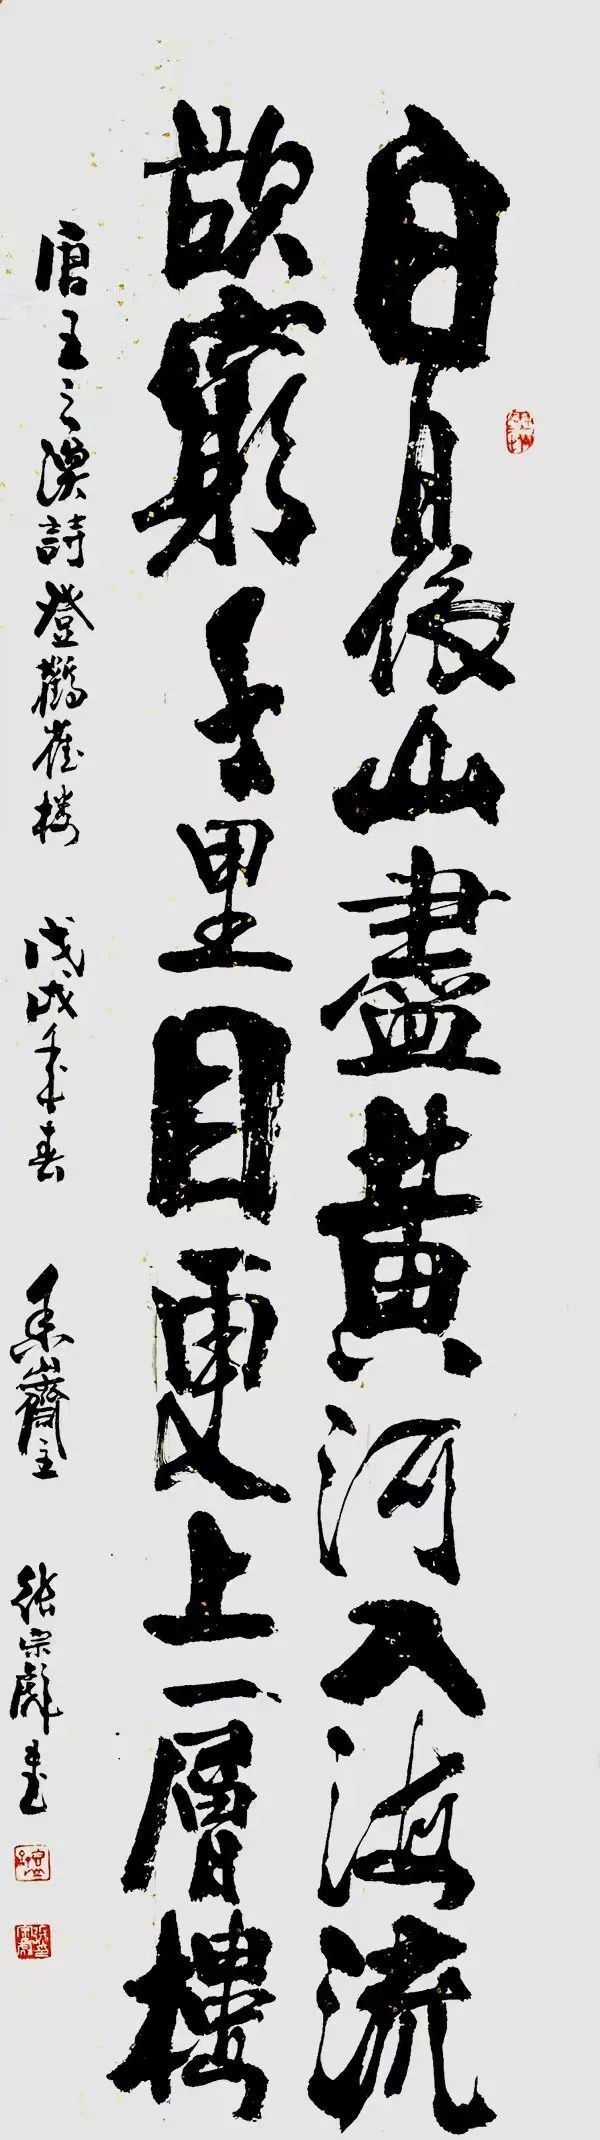 白日依山盡黄河入海流
欲窮千里目更上一層樓
唐王之渙詩登鸛雀楼 戊戌年春 齋主 张宗彪書